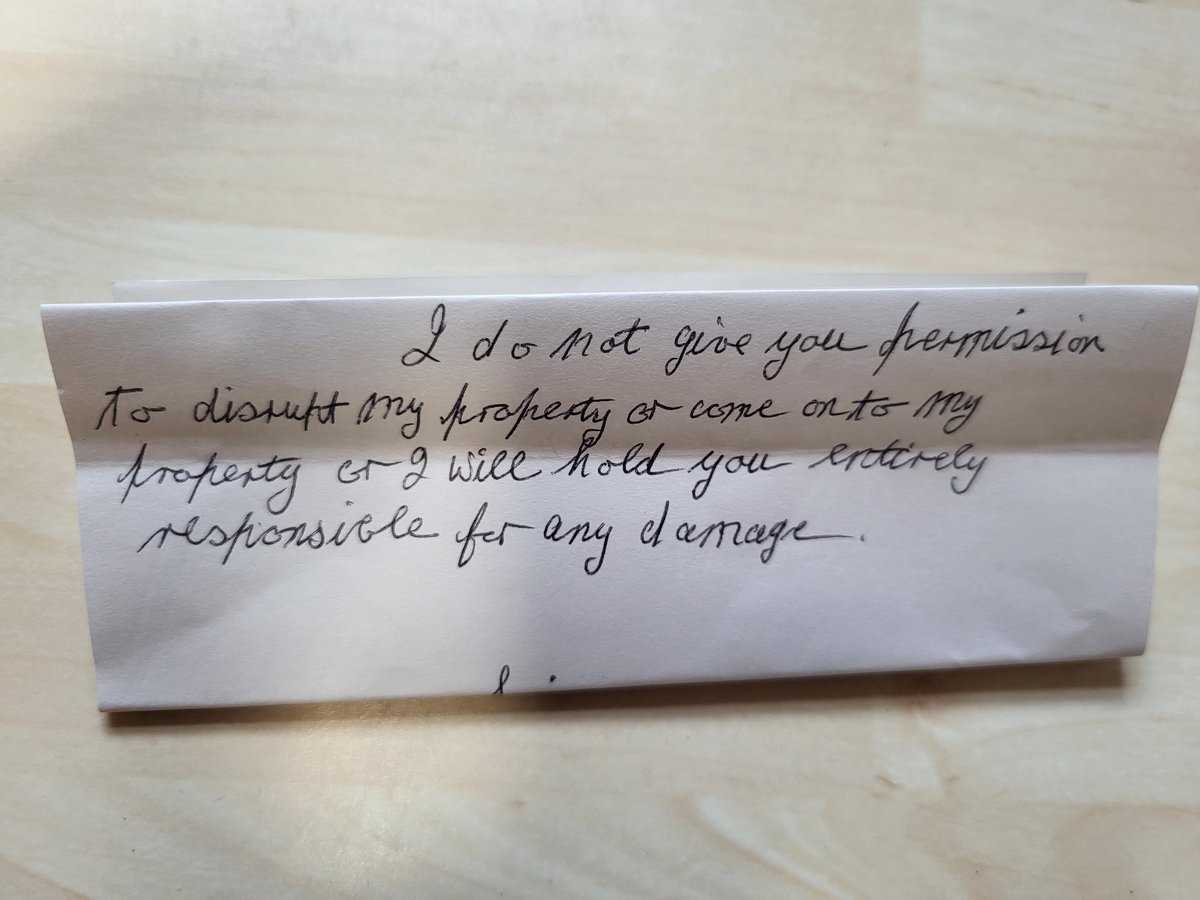 I do not give you permission
to disrupt my property or come onto my
property or I will hold you entirely
responsible for any damage.